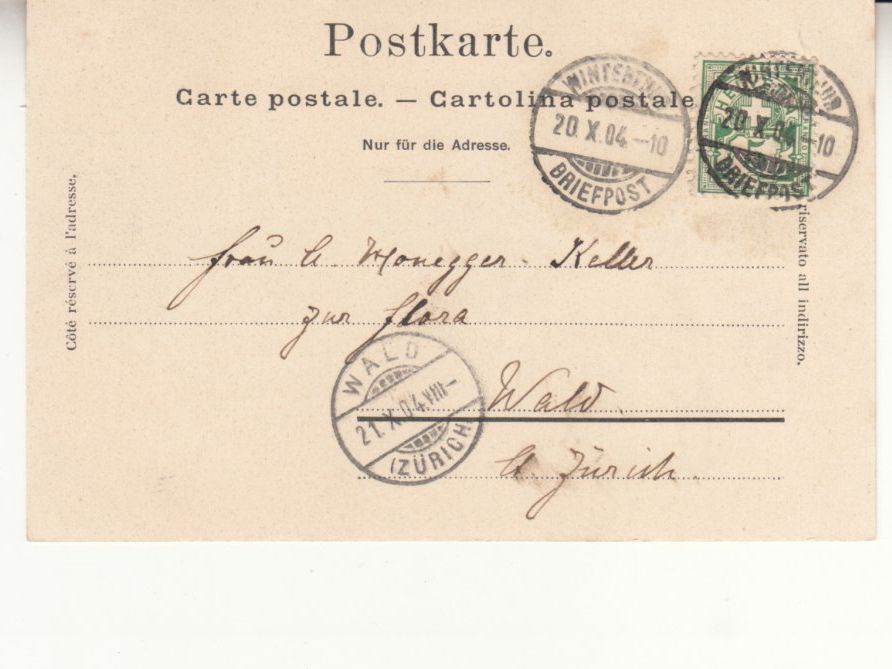 Postkarte.
Carte postale. — Cartolina postale
Nur für die Adresse.
WINTERTHUR
20.X.04.–10
BRIEFPOST
WINTERTHUR
20.X.04.–10
BRIEFPOST
Côté réservé à l'adresse.
riservato all indirizzo.
Frau A. Honegger-Keller
zur Flora
Wald
Kt. Zürich.
WALD
21.X.04.VIII–
(ZÜRICH)